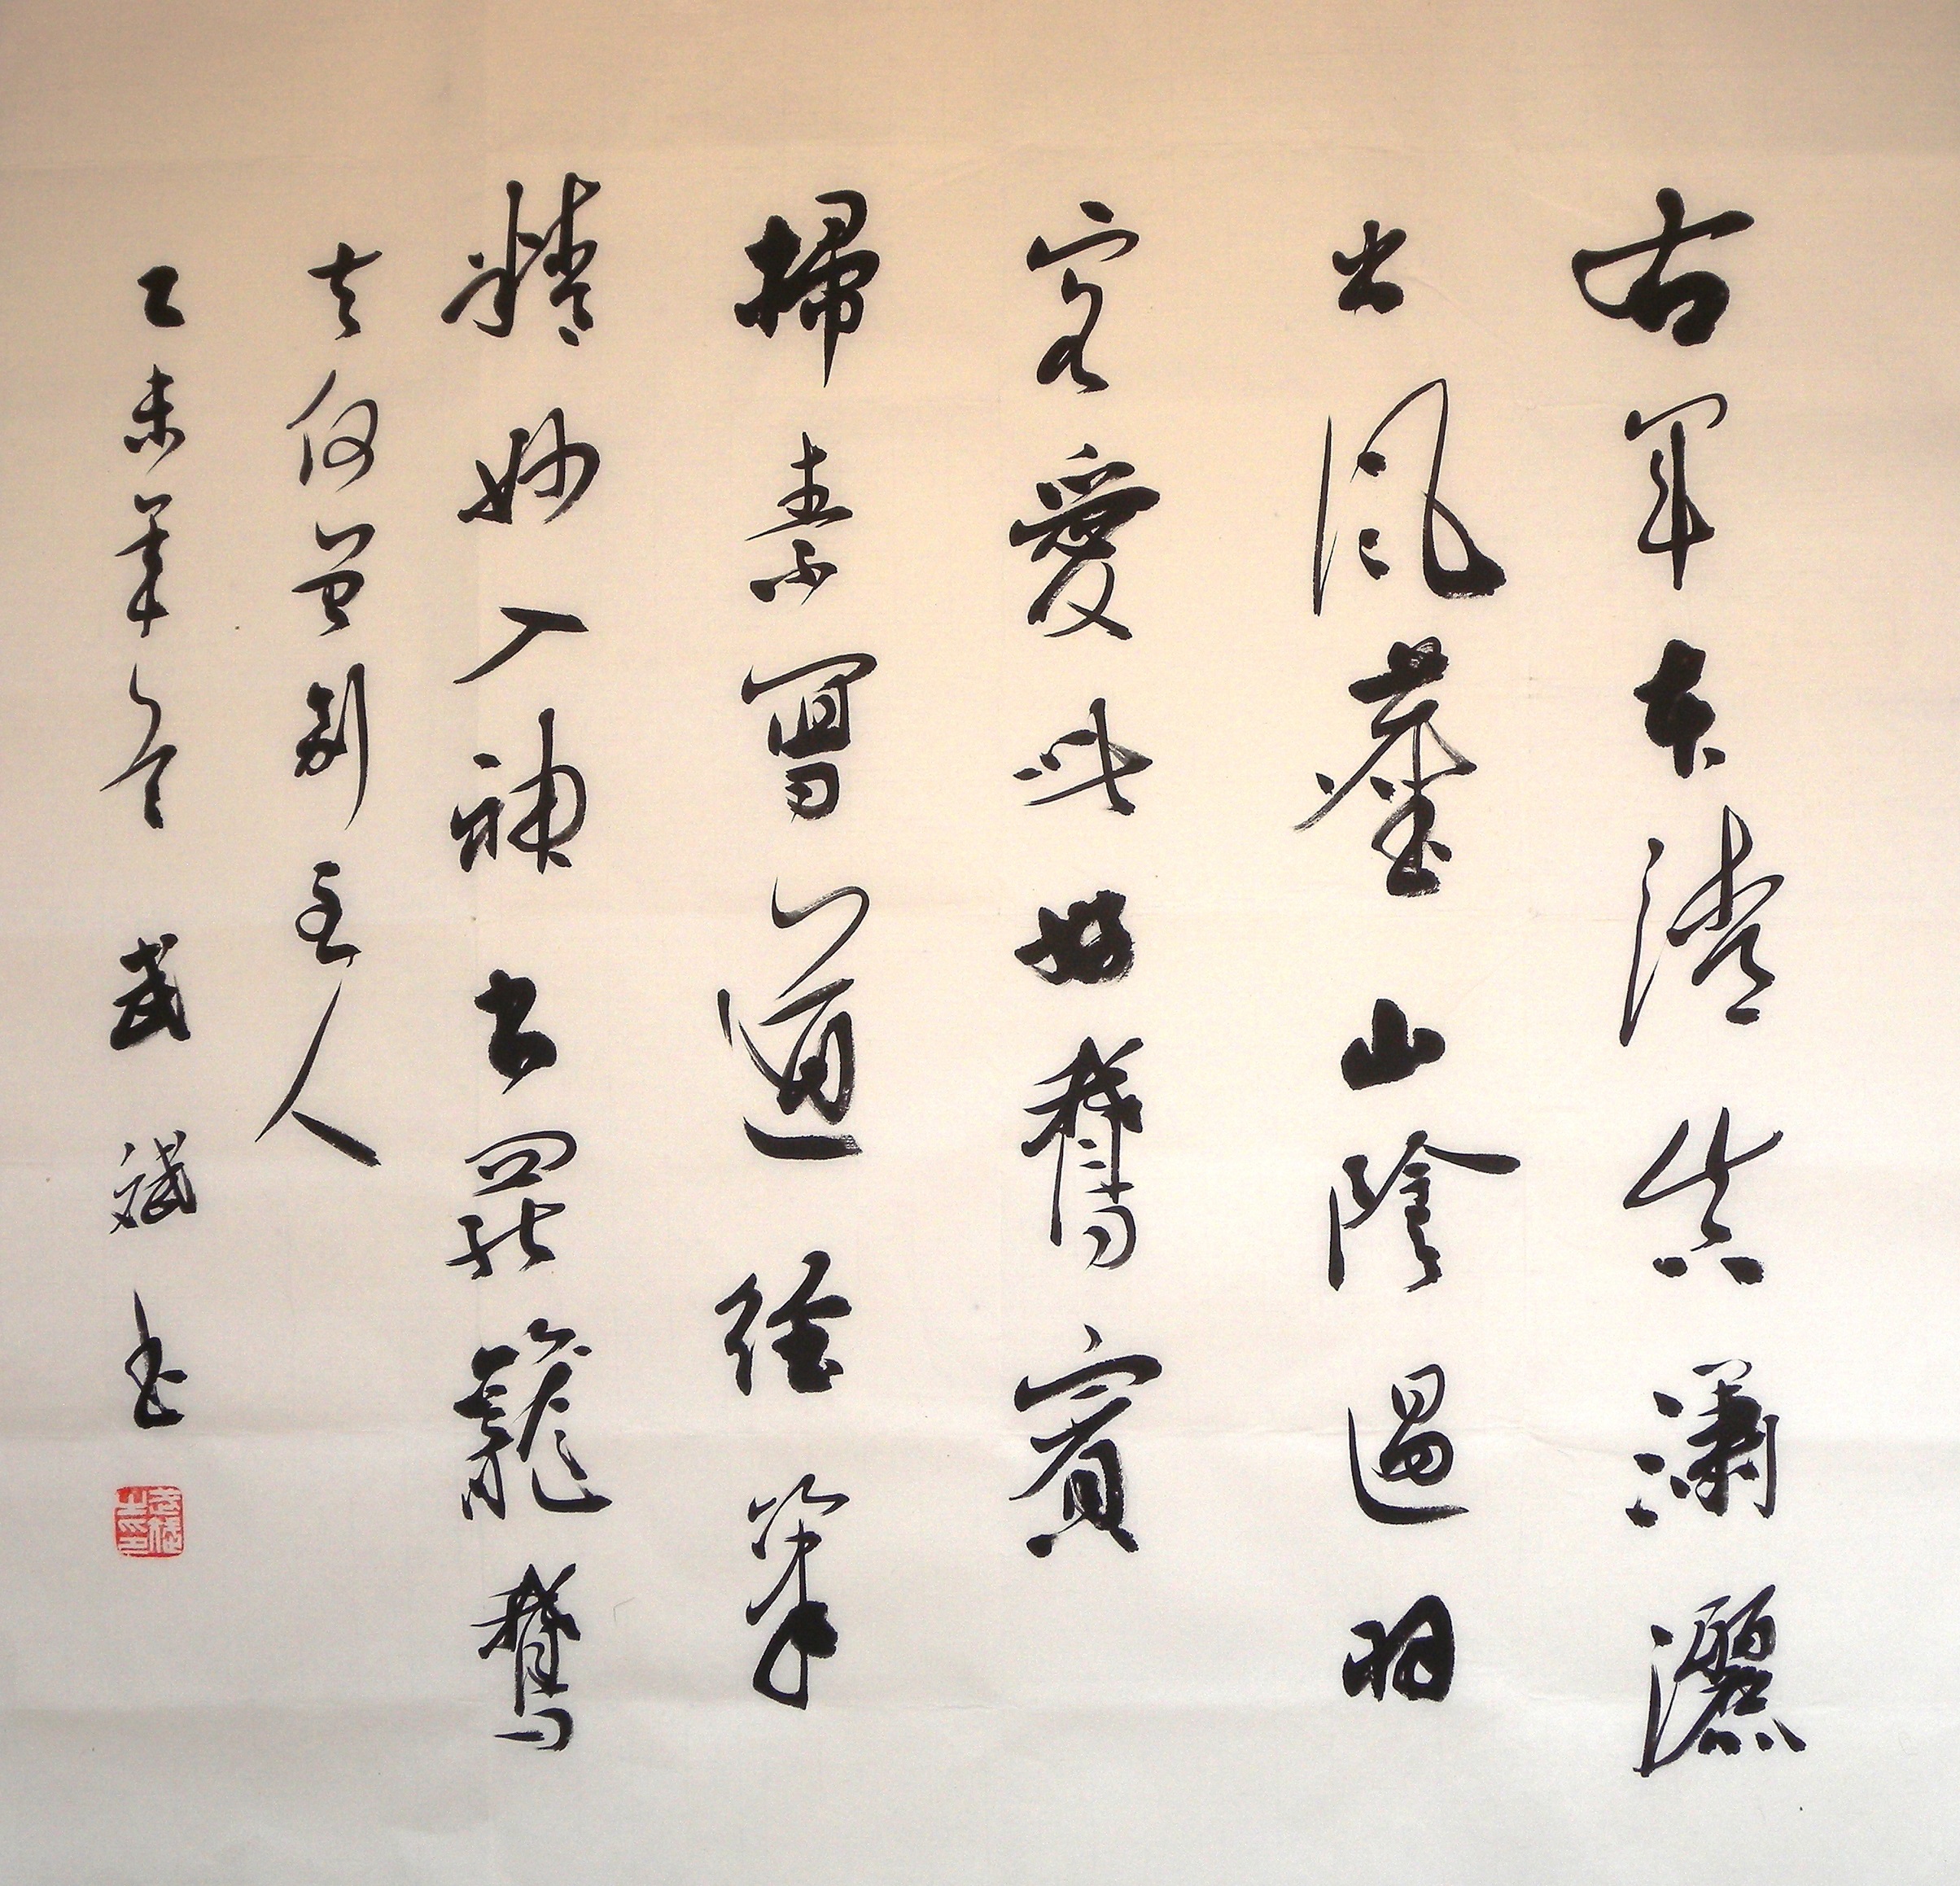 右軍本清真瀟灑
出風塵山陰過羽
客愛此好鵞賓
掃素寫道經筆
精妙入神書罷籠鵞
去何曾別主人
乙未年冬 武斌書
武斌之印